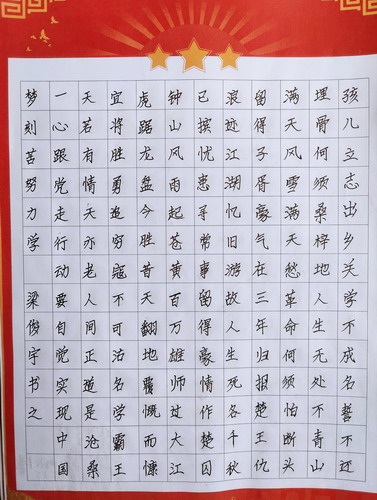 孩儿立志出乡关学不成名誓不还
埋骨何须桑梓地人生无处不青山
满天风雪满天愁革命何须怕断头
留得子胥豪气在三年归报楚王仇
浪迹江湖忆旧游故人生死各千秋
已摈忧患寻常事留得豪情作楚囚
钟山风雨起苍黄百万雄师过大江
虎踞龙盘今胜昔天翻地覆慨而慷
宜将胜勇追穷寇不可治名学霸王
天若有情天亦老人间正道是沧桑
一心跟党走行动要自觉实现中国
梦刻苦努力学 梁俊宇书之